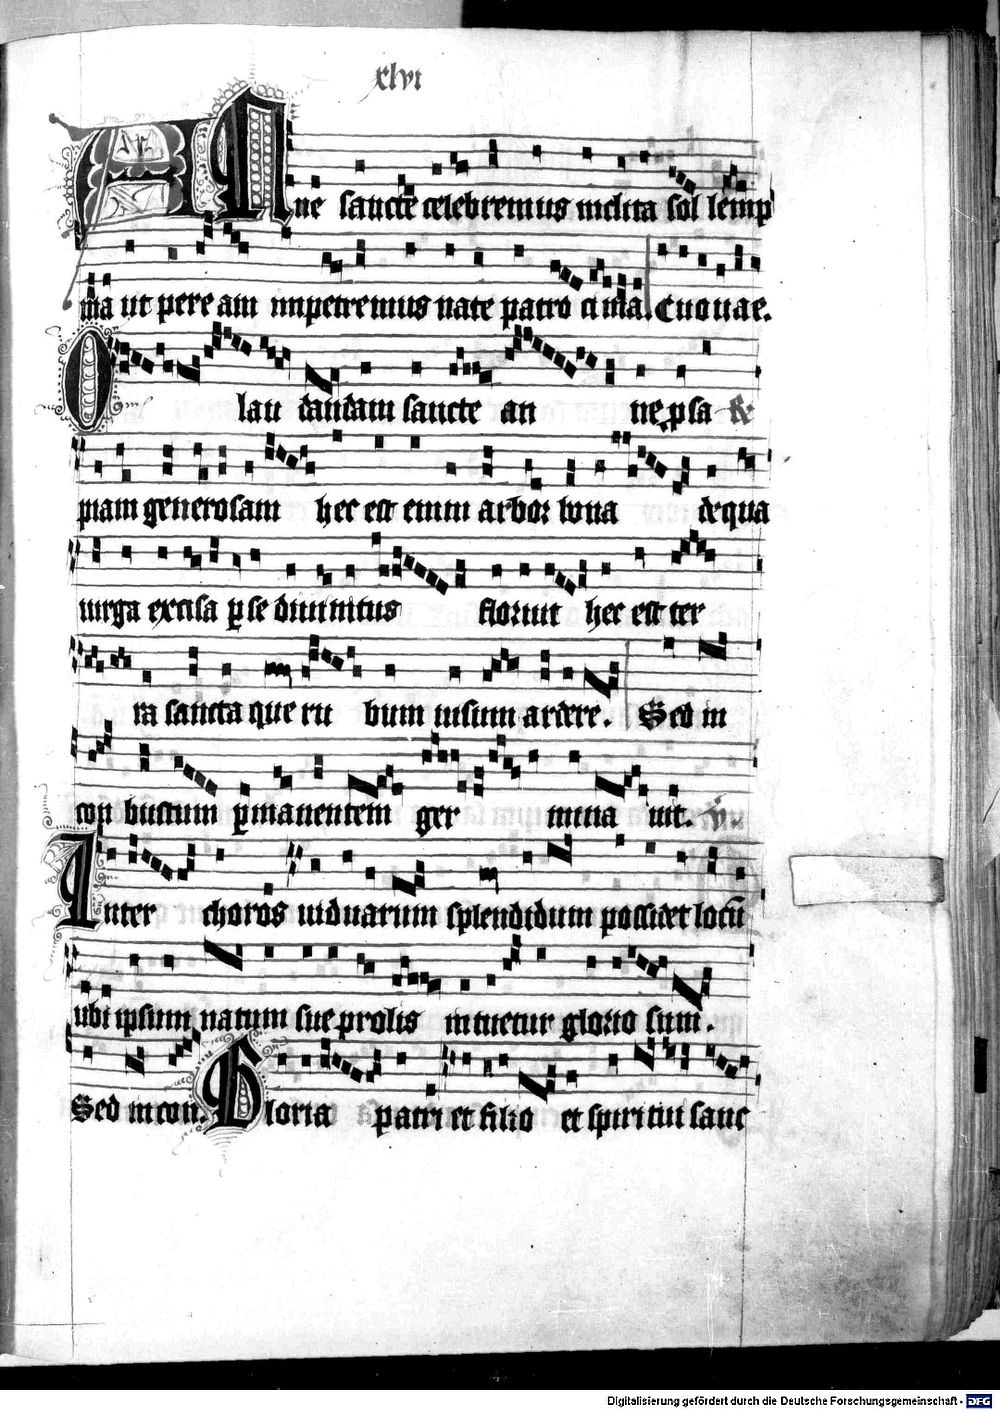 xlvi
Anne sancte celebremus inclita sol lemp
nia ut pere am impetremus nate patro ci nia. Euouae.
O lau dandam sancte an ne p sa &
piam generosam hec est enim arbor bona de qua
uirga excisa p se diuinitus floruit hec est ter
ra sancta que ru bum iusum ardere. Sed in
con bustum pmanentem ger mina uit. V.
Inter choros uiduarum splendidum possidet locū
ubi ipsum natum sue prolis intuetur glorio sum.
Sed in con. Gloria patri et filio et spiritui sanc
Digitalisierung gefördert durch die Deutsche Forschungsgemeinschaft - DFG